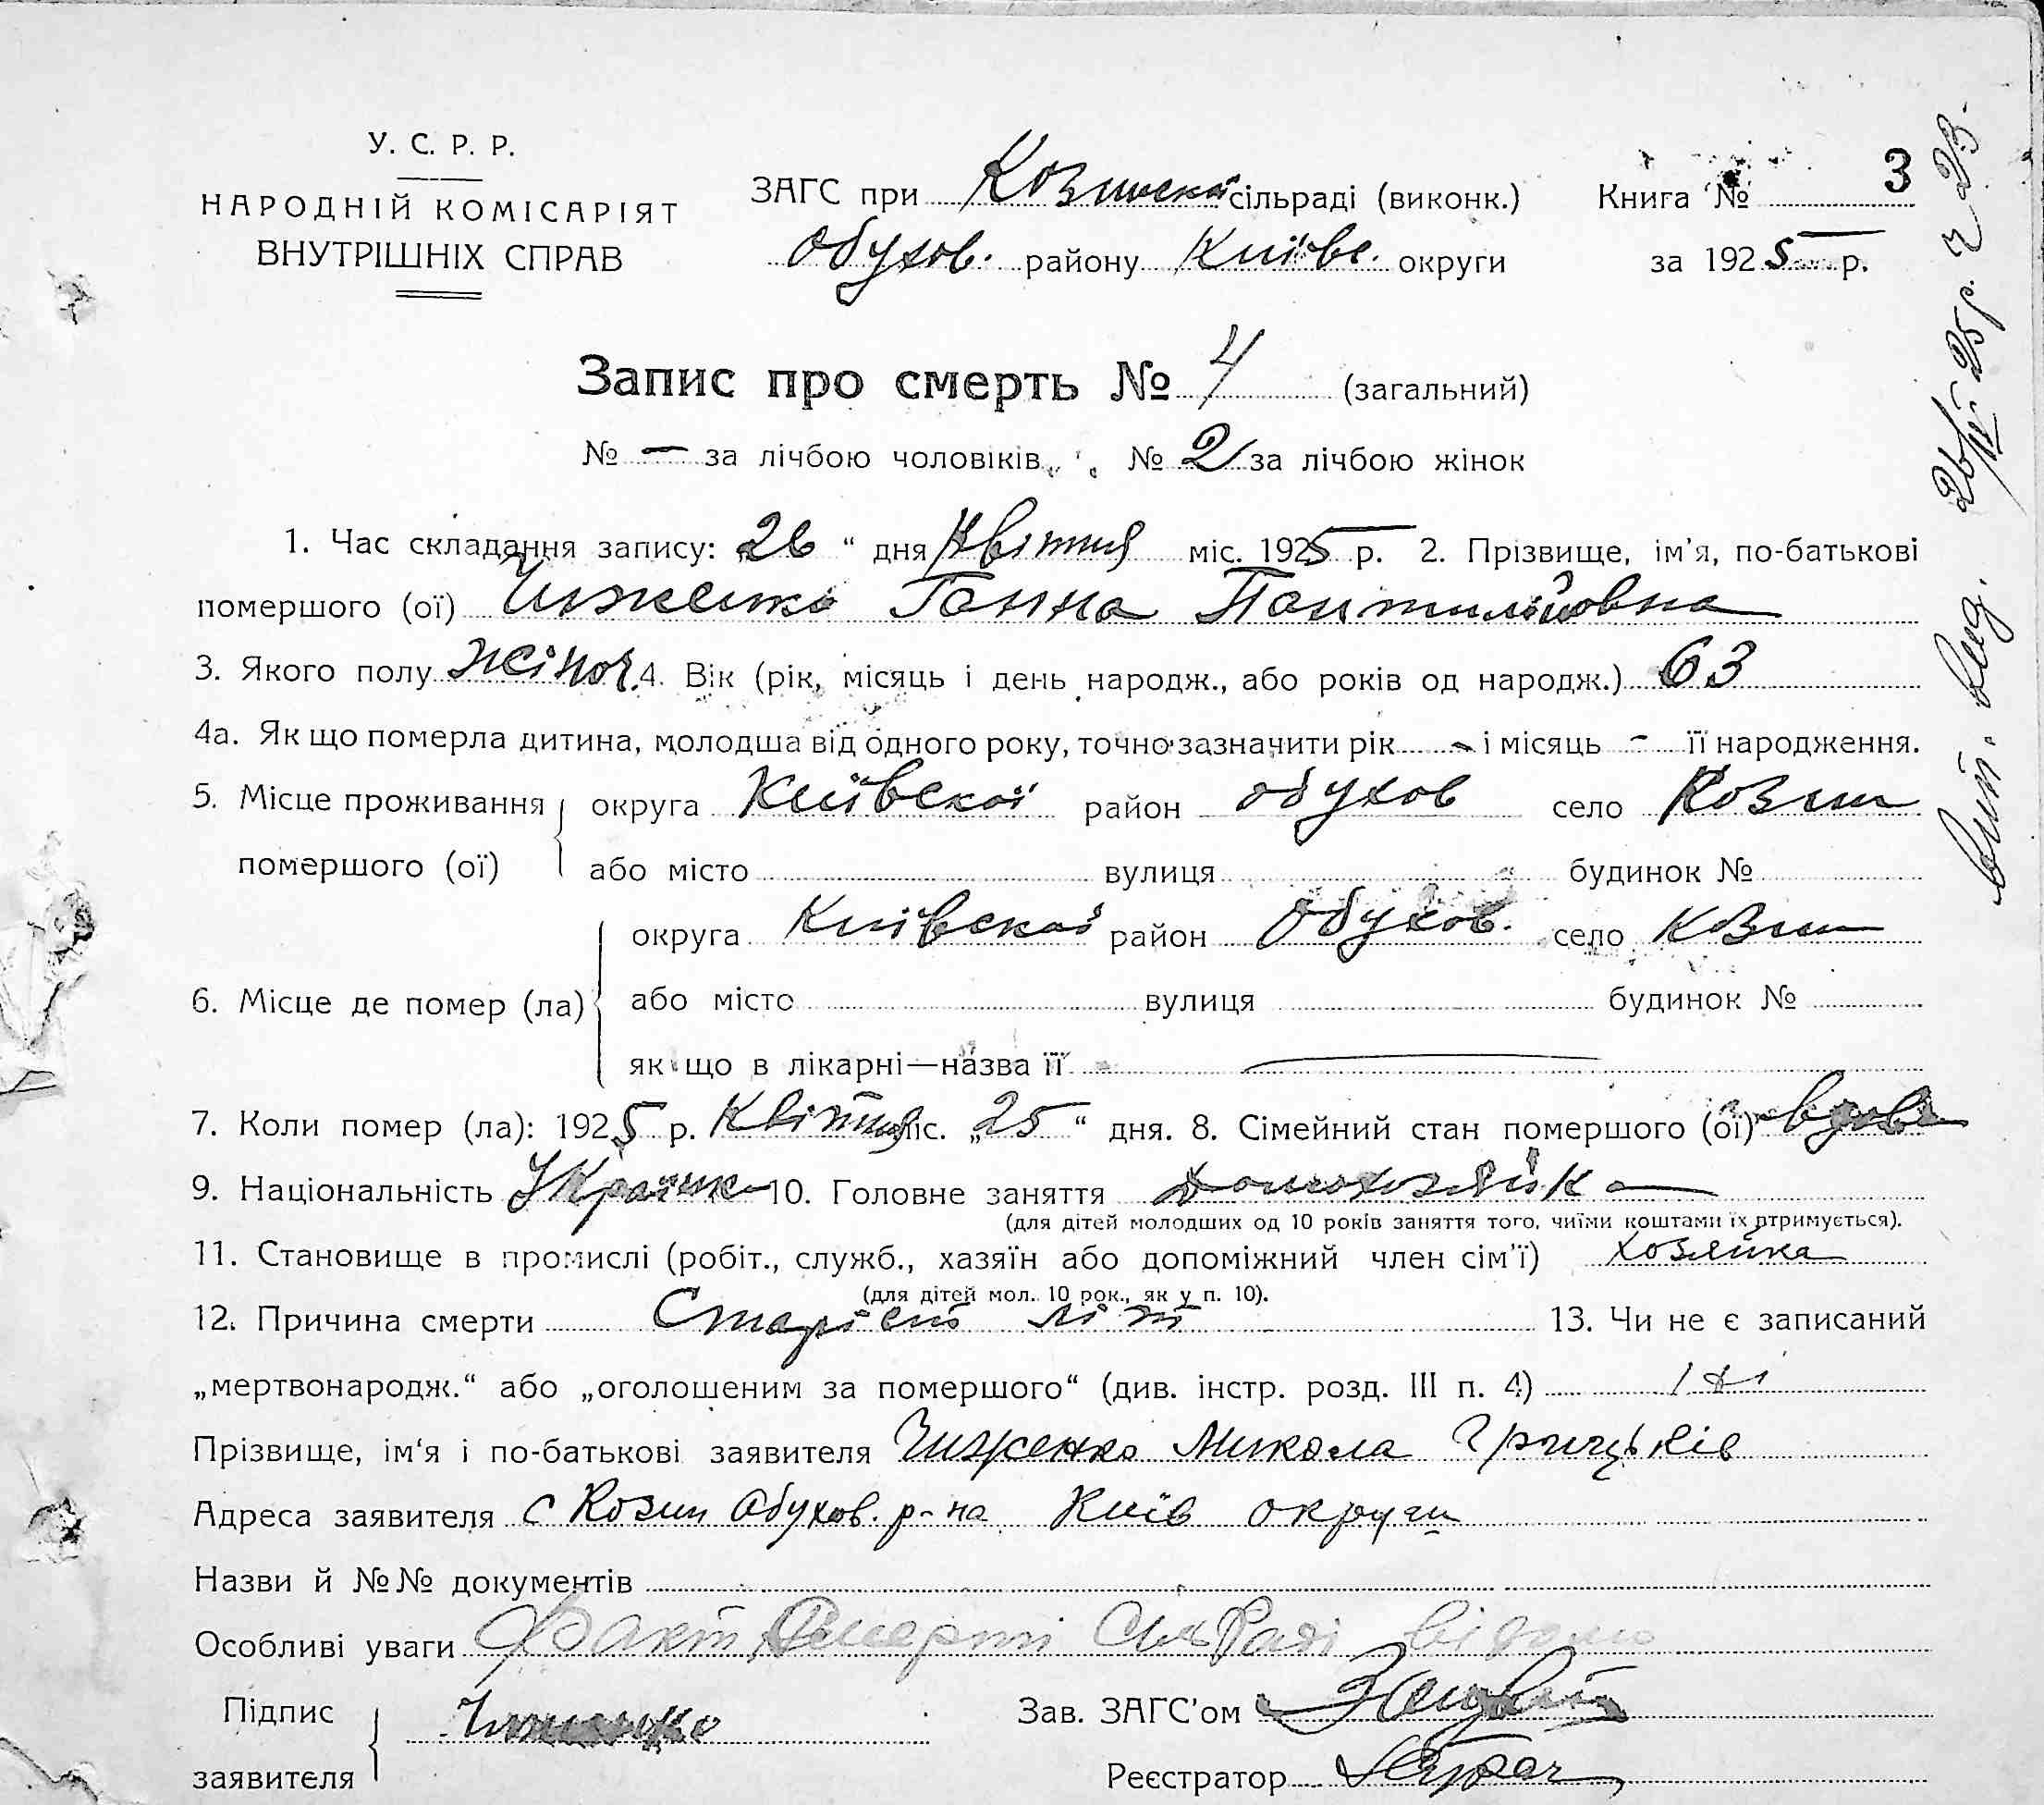 У. С. Р. Р.
НАРОДНІЙ КОМІСАРІЯТ
ВНУТРІШНІХ СПРАВ
ЗАГС при Козинскої сільраді (виконк.)
Обухов. району Київс. округи
Книга № 3
за 1925 р.
Запис про смерть № 4 (загальний)
№ — за лічбою чоловіків, № 2 за лічбою жінок
1. Час складання запису: „26“ дня Квітня міс. 1925 р. 2. Прізвище, ім'я, по-батькові
помершого (ої) Чиженко Ганна
3. Якого полу жіноч. 4. Вік (рік, місяць і день народж., або років од народж.) 63
4а. Як що померла дитина, молодша від одного року, точно зазначити рік - і місяць - її народження.
5. Місце проживання помершого (ої) округа Київскої район обухов село Козин
або місто вулиця будинок №
6. Місце де помер (ла) округа Київскої район Обухов. село Козин
або місто вулиця будинок №
як що в лікарні—назва її —
7. Коли помер (ла): 1925 р. Квітня міс. „25“ дня. 8. Сімейний стан помершого (ої) вдова
9. Національність Українка 10. Головне заняття Домохозяйка
(для дітей молодших од 10 років заняття того, чиїми коштами їх втримується).
11. Становище в промислі (робіт., служб., хазяїн або допоміжний член сім'ї) хозяйка
(для дітей мол. 10 рок., як у п. 10).
12. Причина смерти Старість літ 13. Чи не є записаний
„мертвонародж.“ або „оголошеним за помершого“ (див. інстр. розд. III п. 4)
Прізвище, ім'я і по-батькові заявителя Чиженко Микола Грицьків
Адреса заявителя с Козин Обухов. р-на Київ округи
Назви й №№ документів
Особливі уваги Факт Смерти СільРаді відомо
Підпис заявителя Чиженко
Зав. ЗАГС'ом
Реєстратор
Вит. вид. 26/IV 25 р. ч 23.